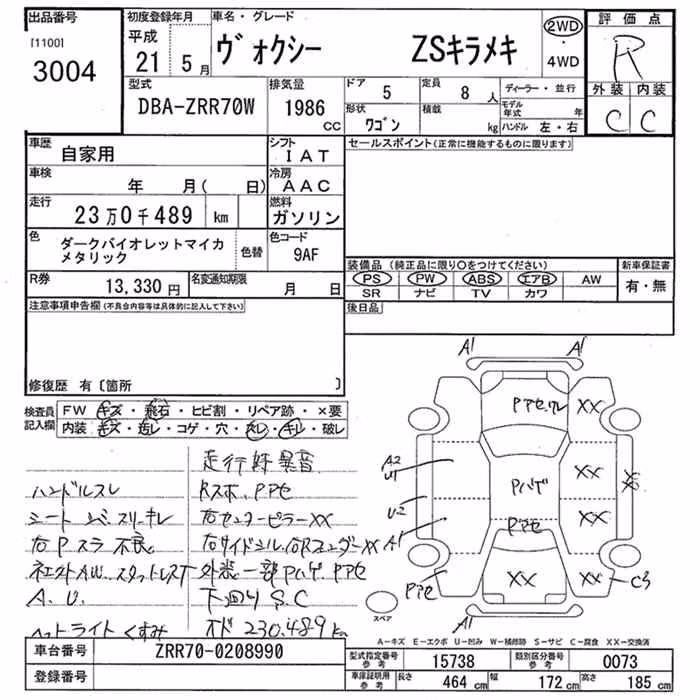 出品番号
[1100]
3004
初度登録年月
平成
21 5月
車名・グレード
ヴォクシー ZSキラメキ
2WD
・
4WD
評価点
R
外装 内装
C C
型式
DBA-ZRR70W
排気量
1986
CC
ドア
5
定員
8人
ディーラー・並行
モデル年式 年
形状
ワゴン
積載
kg
ハンドル 左・右
車歴
自家用
シフト
IAT
セールスポイント(正常に機能するものに限ります)
車検
年 月( 日)
冷房
AAC
走行
23万0千489 km
燃料
ガソリン
色
ダークバイオレットマイカ
メタリック
色替
色コード
9AF
装備品 (純正品に限り〇をつけてください)
新車保証書
PS PW ABS エアB AW
有・無
SR ナビ TV カワ
R券
13,330円
名変通知期限
月 日
後日品
注意事項申告欄(不具合内容等は具体的に記入して下さい)
修復歴 有〔箇所 〕
検査員
記入欄
FW キズ・飛石・ヒビ割・リペア跡・×要
内装 キズ・汚レ・コゲ・穴・スレ・キレ・破レ
走行時異音
ハンドルスレ
Rスポ、Pアセ
シート シミ、スリキレ
右センターピラーXX
右Pスラ不良
右サイドシル、右RフェンダーXX
社外AW、スタッドレスT
外装一部Pハゲ、Pアセ
A.U.
下廻りS.C
ヘッドライトくすみ
オド230,489km
A1
A1
Pアセ、ワレ
XX
A2
U1
Pハゲ
XX
XX
U2
A1
Pアセ
XX
Pアセ
XX
XX
C3
A1
スペア
A-キズ E-エクボ U-凹み W-補修跡 S-サビ C-腐食 XX-交換済
車台番号
ZRR70-0208990
登録番号
型式指定番号
参考
15738
類別区分番号
参考
0073
車庫証明用
参考
長さ
464cm
幅
172cm
高さ
185cm